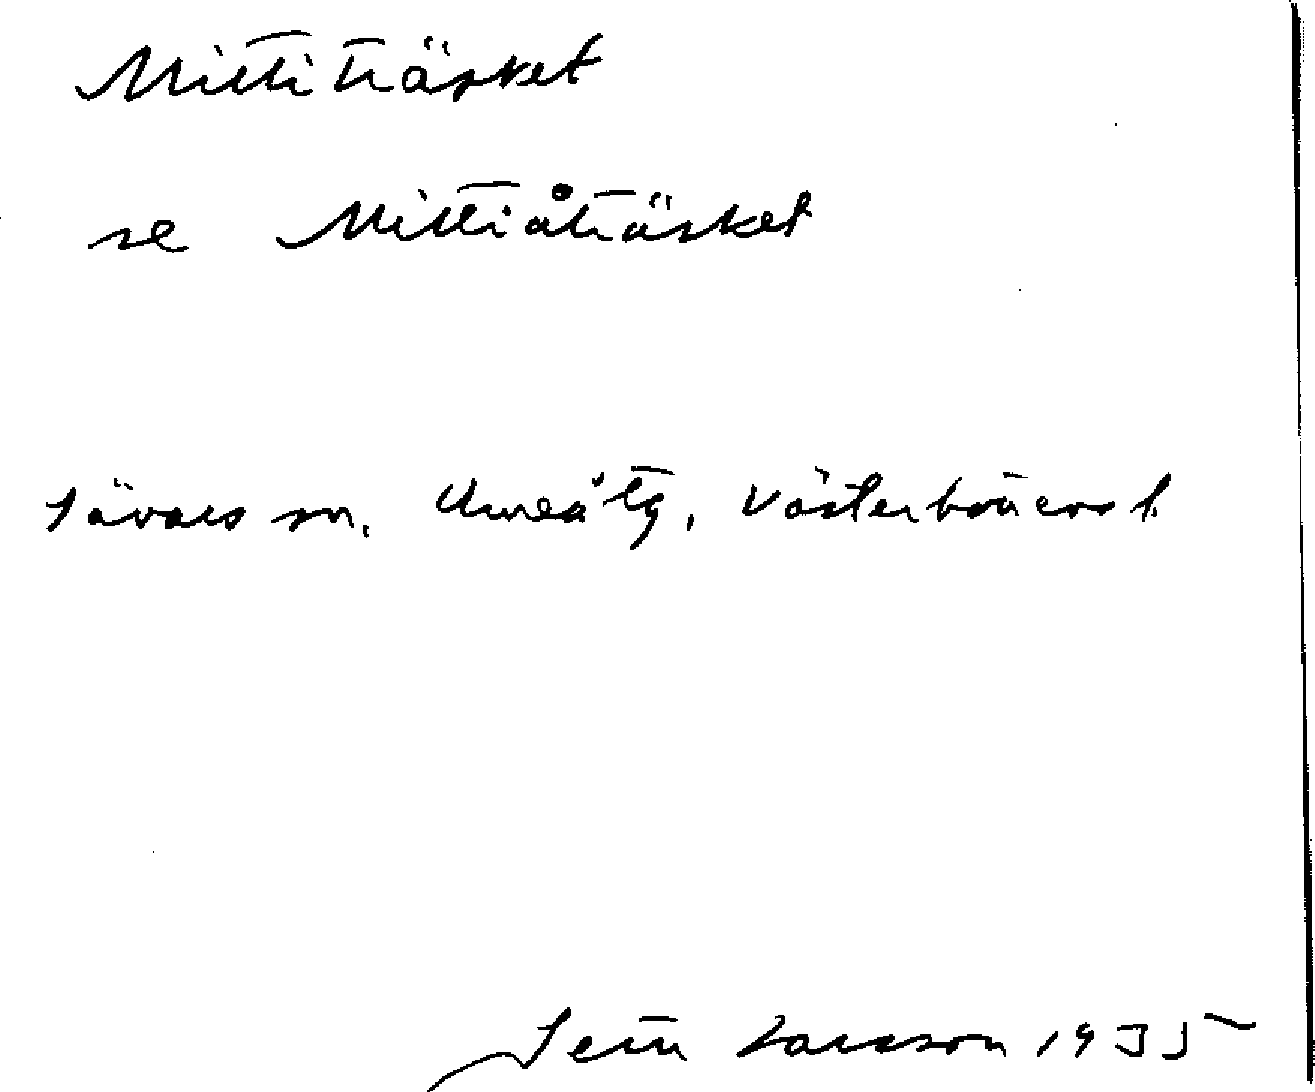 Mittiträsket
se Mittiåträsket
Sävars sn, Umeå tg, Västerbottens l.
Larsson 1935